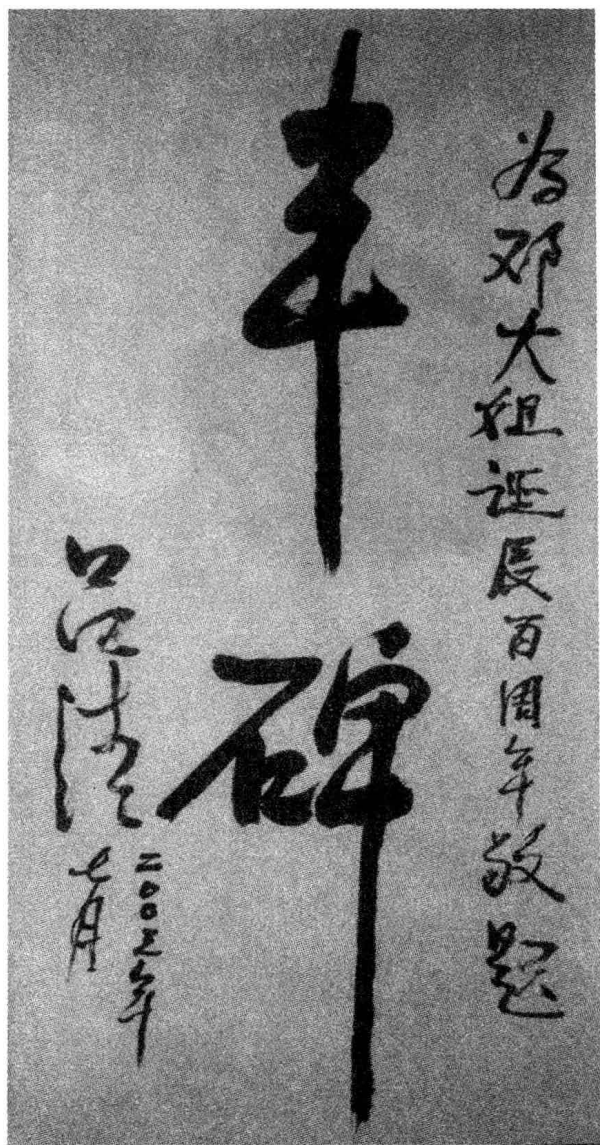 为邓大姐诞辰百周年敬题
丰碑
二〇〇三年
七月